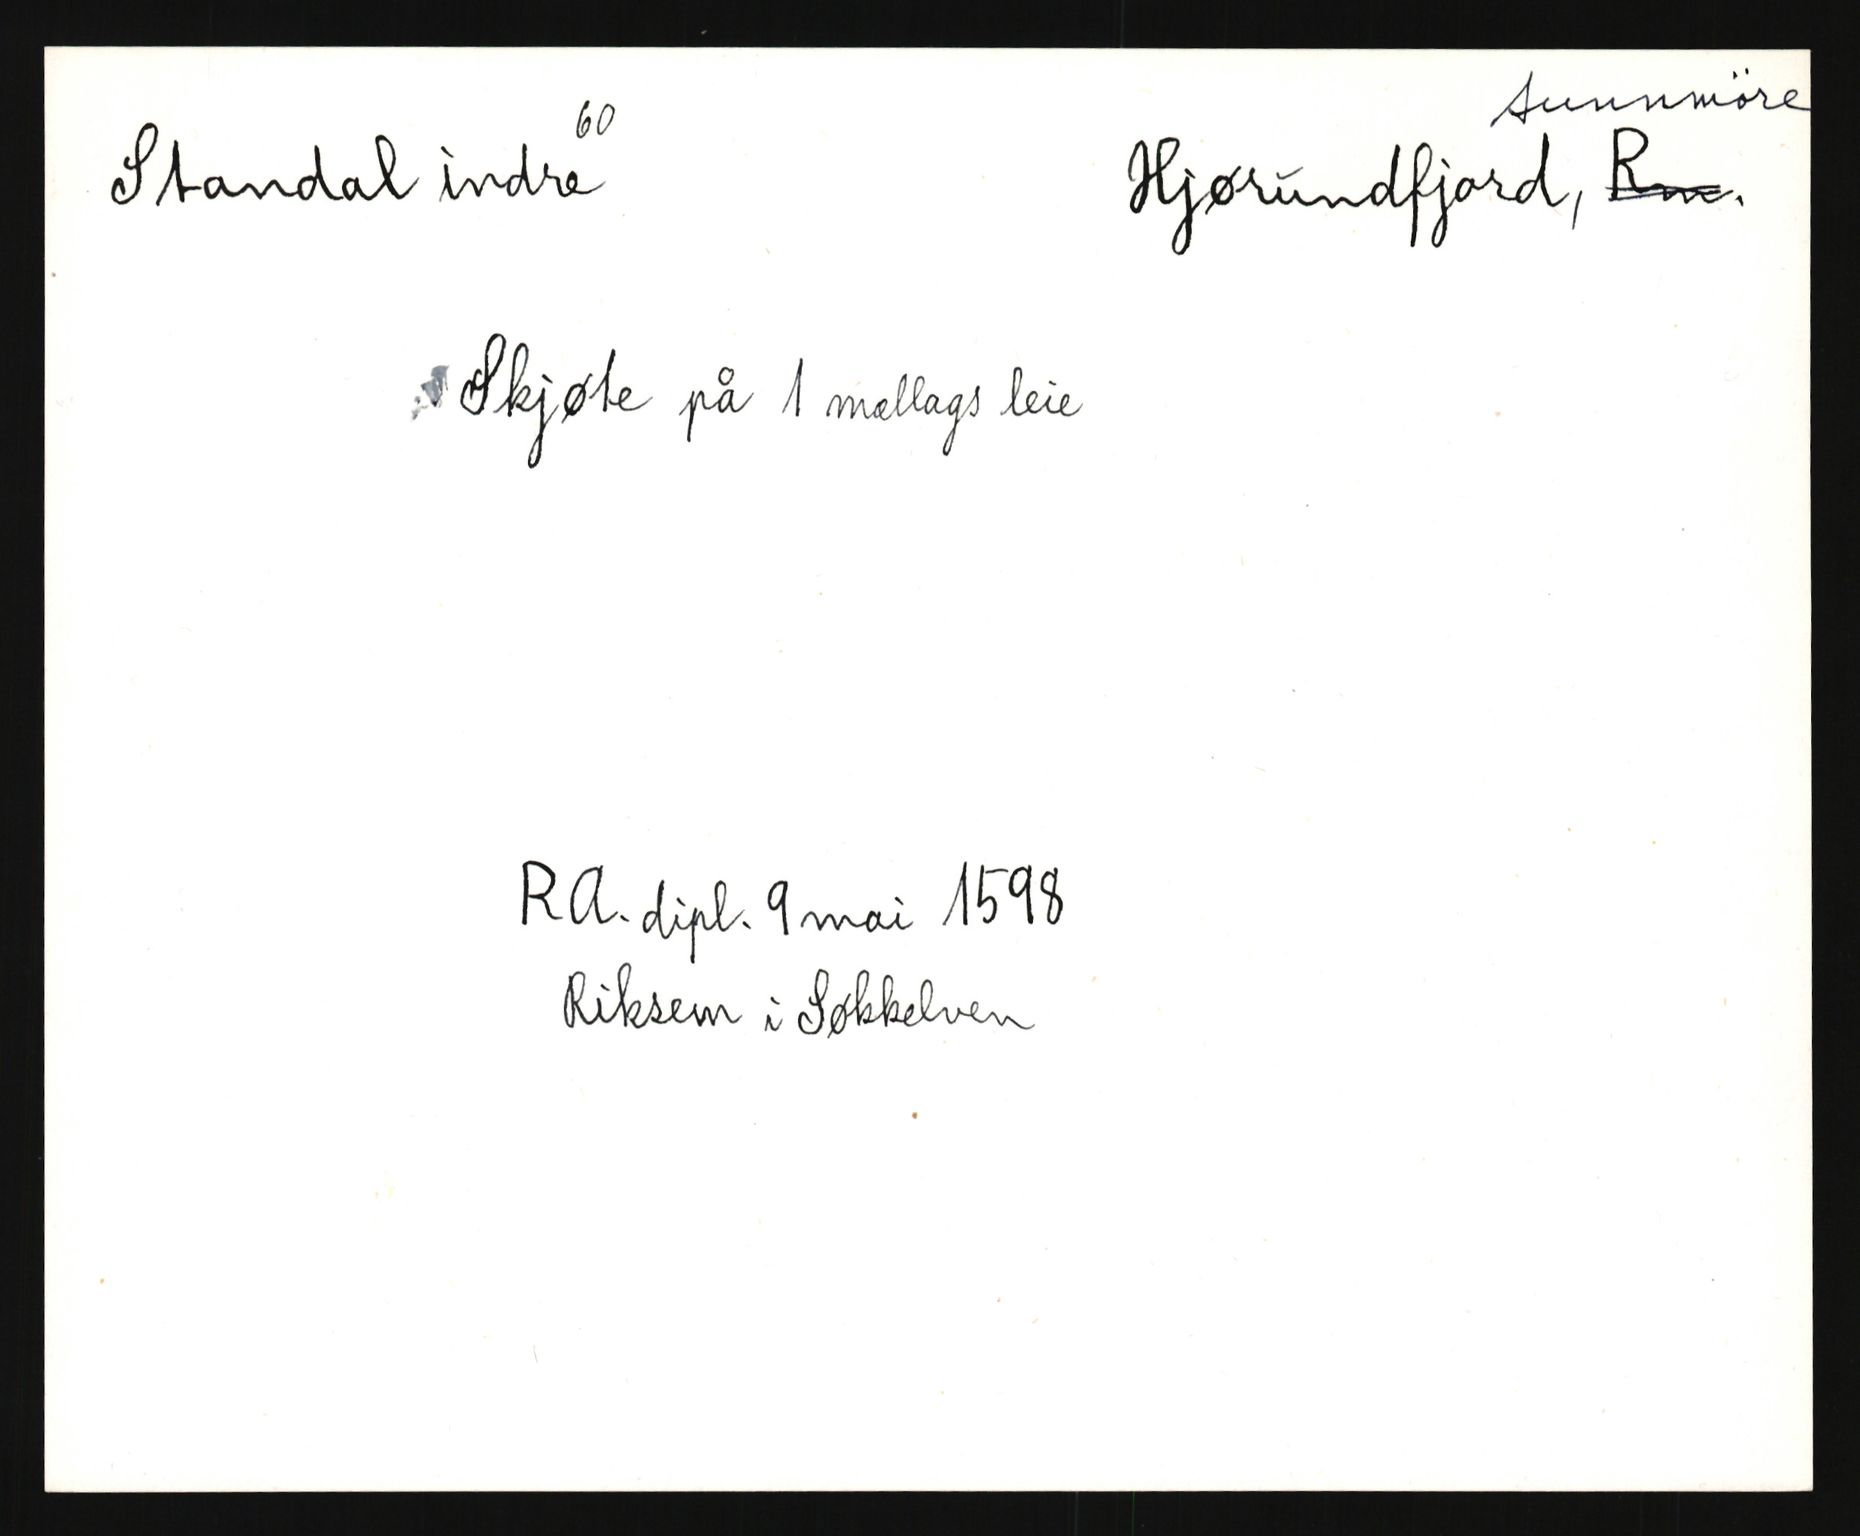 Sunnmöre
Standal indre 60 Hjørundfjord, Rm.
Skjøte på 1 mællags leie
RA. dipl. 9 mai 1598
Riksem i Søkkelven